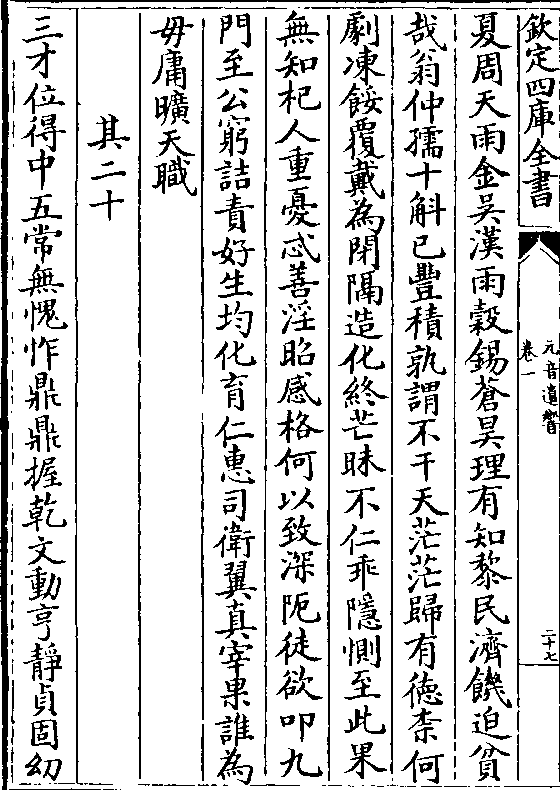 欽定四庫全書
元音遺響
卷一
二十七
夏周天雨金吳漢雨穀錫蒼昊理有知黎民濟饑迫貧
哉翁仲孺十斛已豐積孰謂不干天茫茫歸有徳柰何
劇凍餒覆戴為閉隔造化終芒昧不仁乖隱惻至此果
無知杞人重憂忒善淫昭感格何以致深阨徒欲叩九
門至公窮詰責好生均化育仁惠司衛翼真宰果誰為
毋庸曠天職
其二十
三才位得中五常無愧怍鼎鼎握乾文動亨靜貞固幻